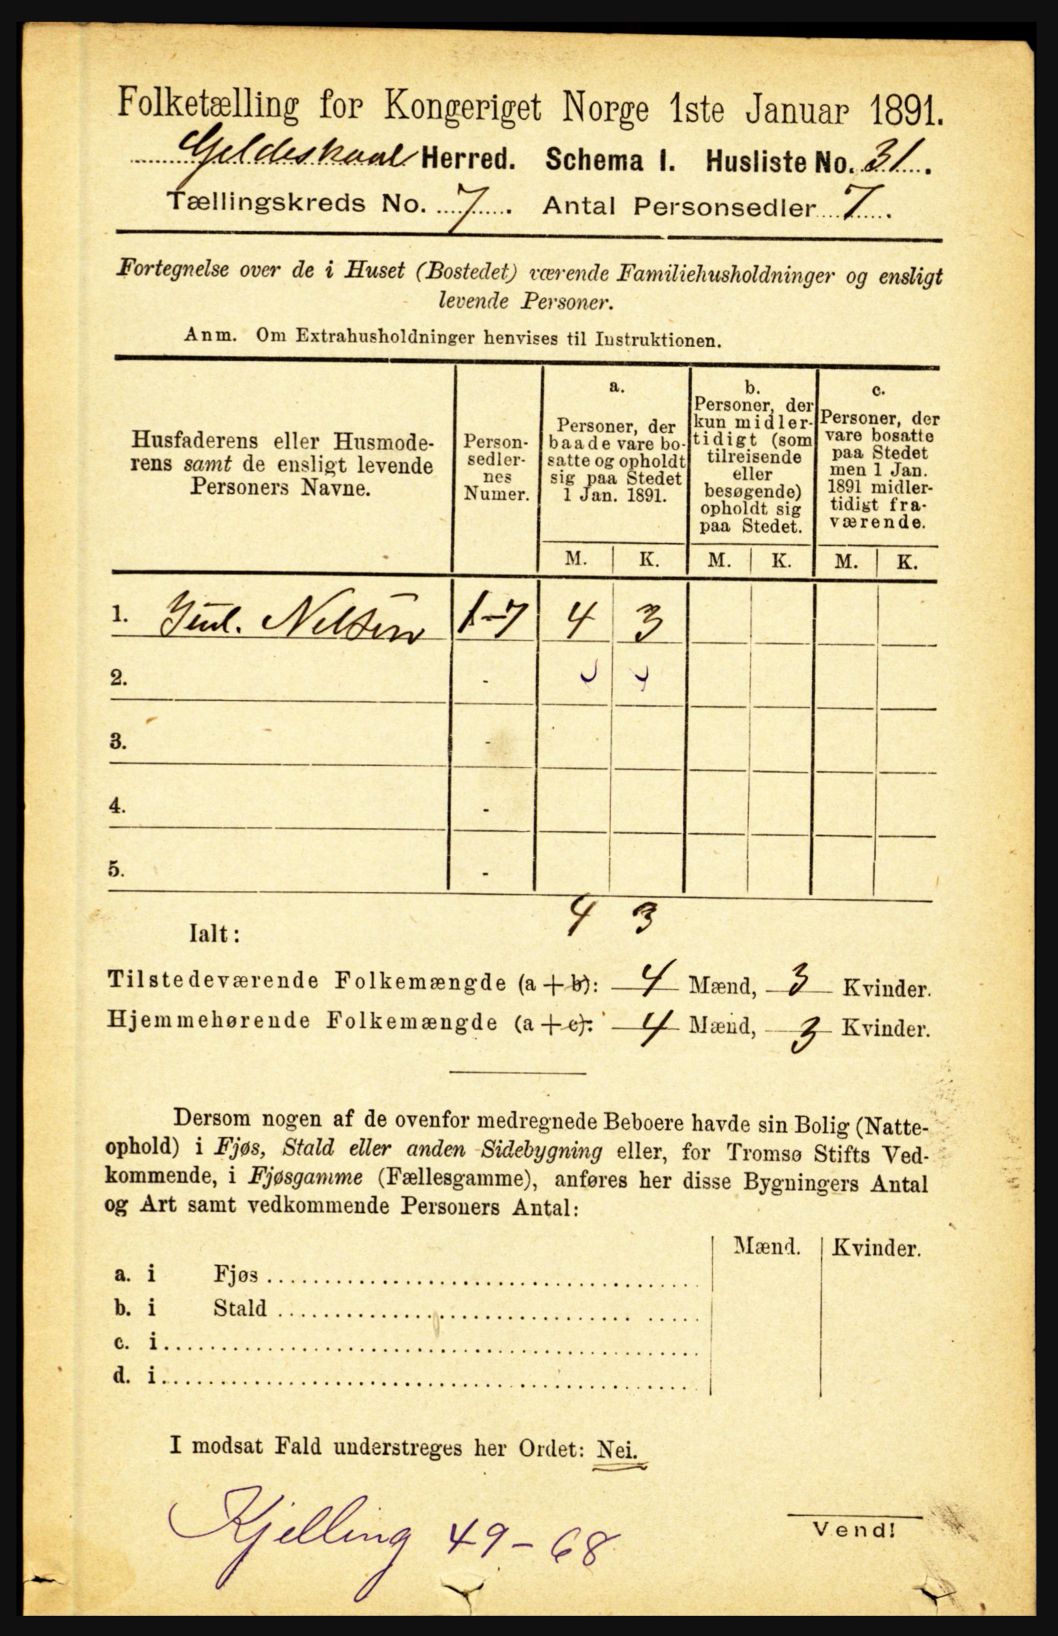 Folketælling for Kongeriget Norge 1ste Januar 1891.
Gildeskaal Herred. Schema I. Husliste No. 31.
Tællingskreds No. 7. Antal Personsedler 7.
Fortegnelse over de i Huset (Bostedet) værende Familiehusholdninger og ensligt
levende Personer.
Anm. Om Extrahusholdninger henvises til Instruktionen.
Husfaderens eller Husmode-
rens samt de ensligt levende
Personers Navne.
Person-
sedler-
nes
Numer.
a.
Personer, der
baade vare bo-
satte og opholdt
sig paa Stedet
1 Jan. 1891.
b.
Personer, der
kun midler-
tidigt (som
tilreisende
eller
besøgende)
opholdt sig
paa Stedet.
c.
Personer, der
vare bosatte
paa Stedet
men 1 Jan.
1891 midler-
tidigt fra-
værende.
M. K. M. K. M. K.
1. Nelsen 1-7 4 3
2. -
3. -
4. -
5. -
4 3
Ialt:
Tilstedeværende Folkemængde (a + b): 4 Mænd, 3 Kvinder.
Hjemmehørende Folkemængde (a + c): 4 Mænd, 3 Kvinder.
Dersom nogen af de ovenfor medregnede Beboere havde sin Bolig (Natte-
ophold) i Fjøs, Stald eller anden Sidebygning eller, for Tromsø Stifts Ved-
kommende, i Fjøsgamme (Fællesgamme), anføres her disse Bygningers Antal
og Art samt vedkommende Personers Antal:
Mænd. Kvinder.
a. i Fjøs
b. i Stald
c. i
d. i
I modsat Fald understreges her Ordet: Nei.
Kjelling 49-68
Vend!